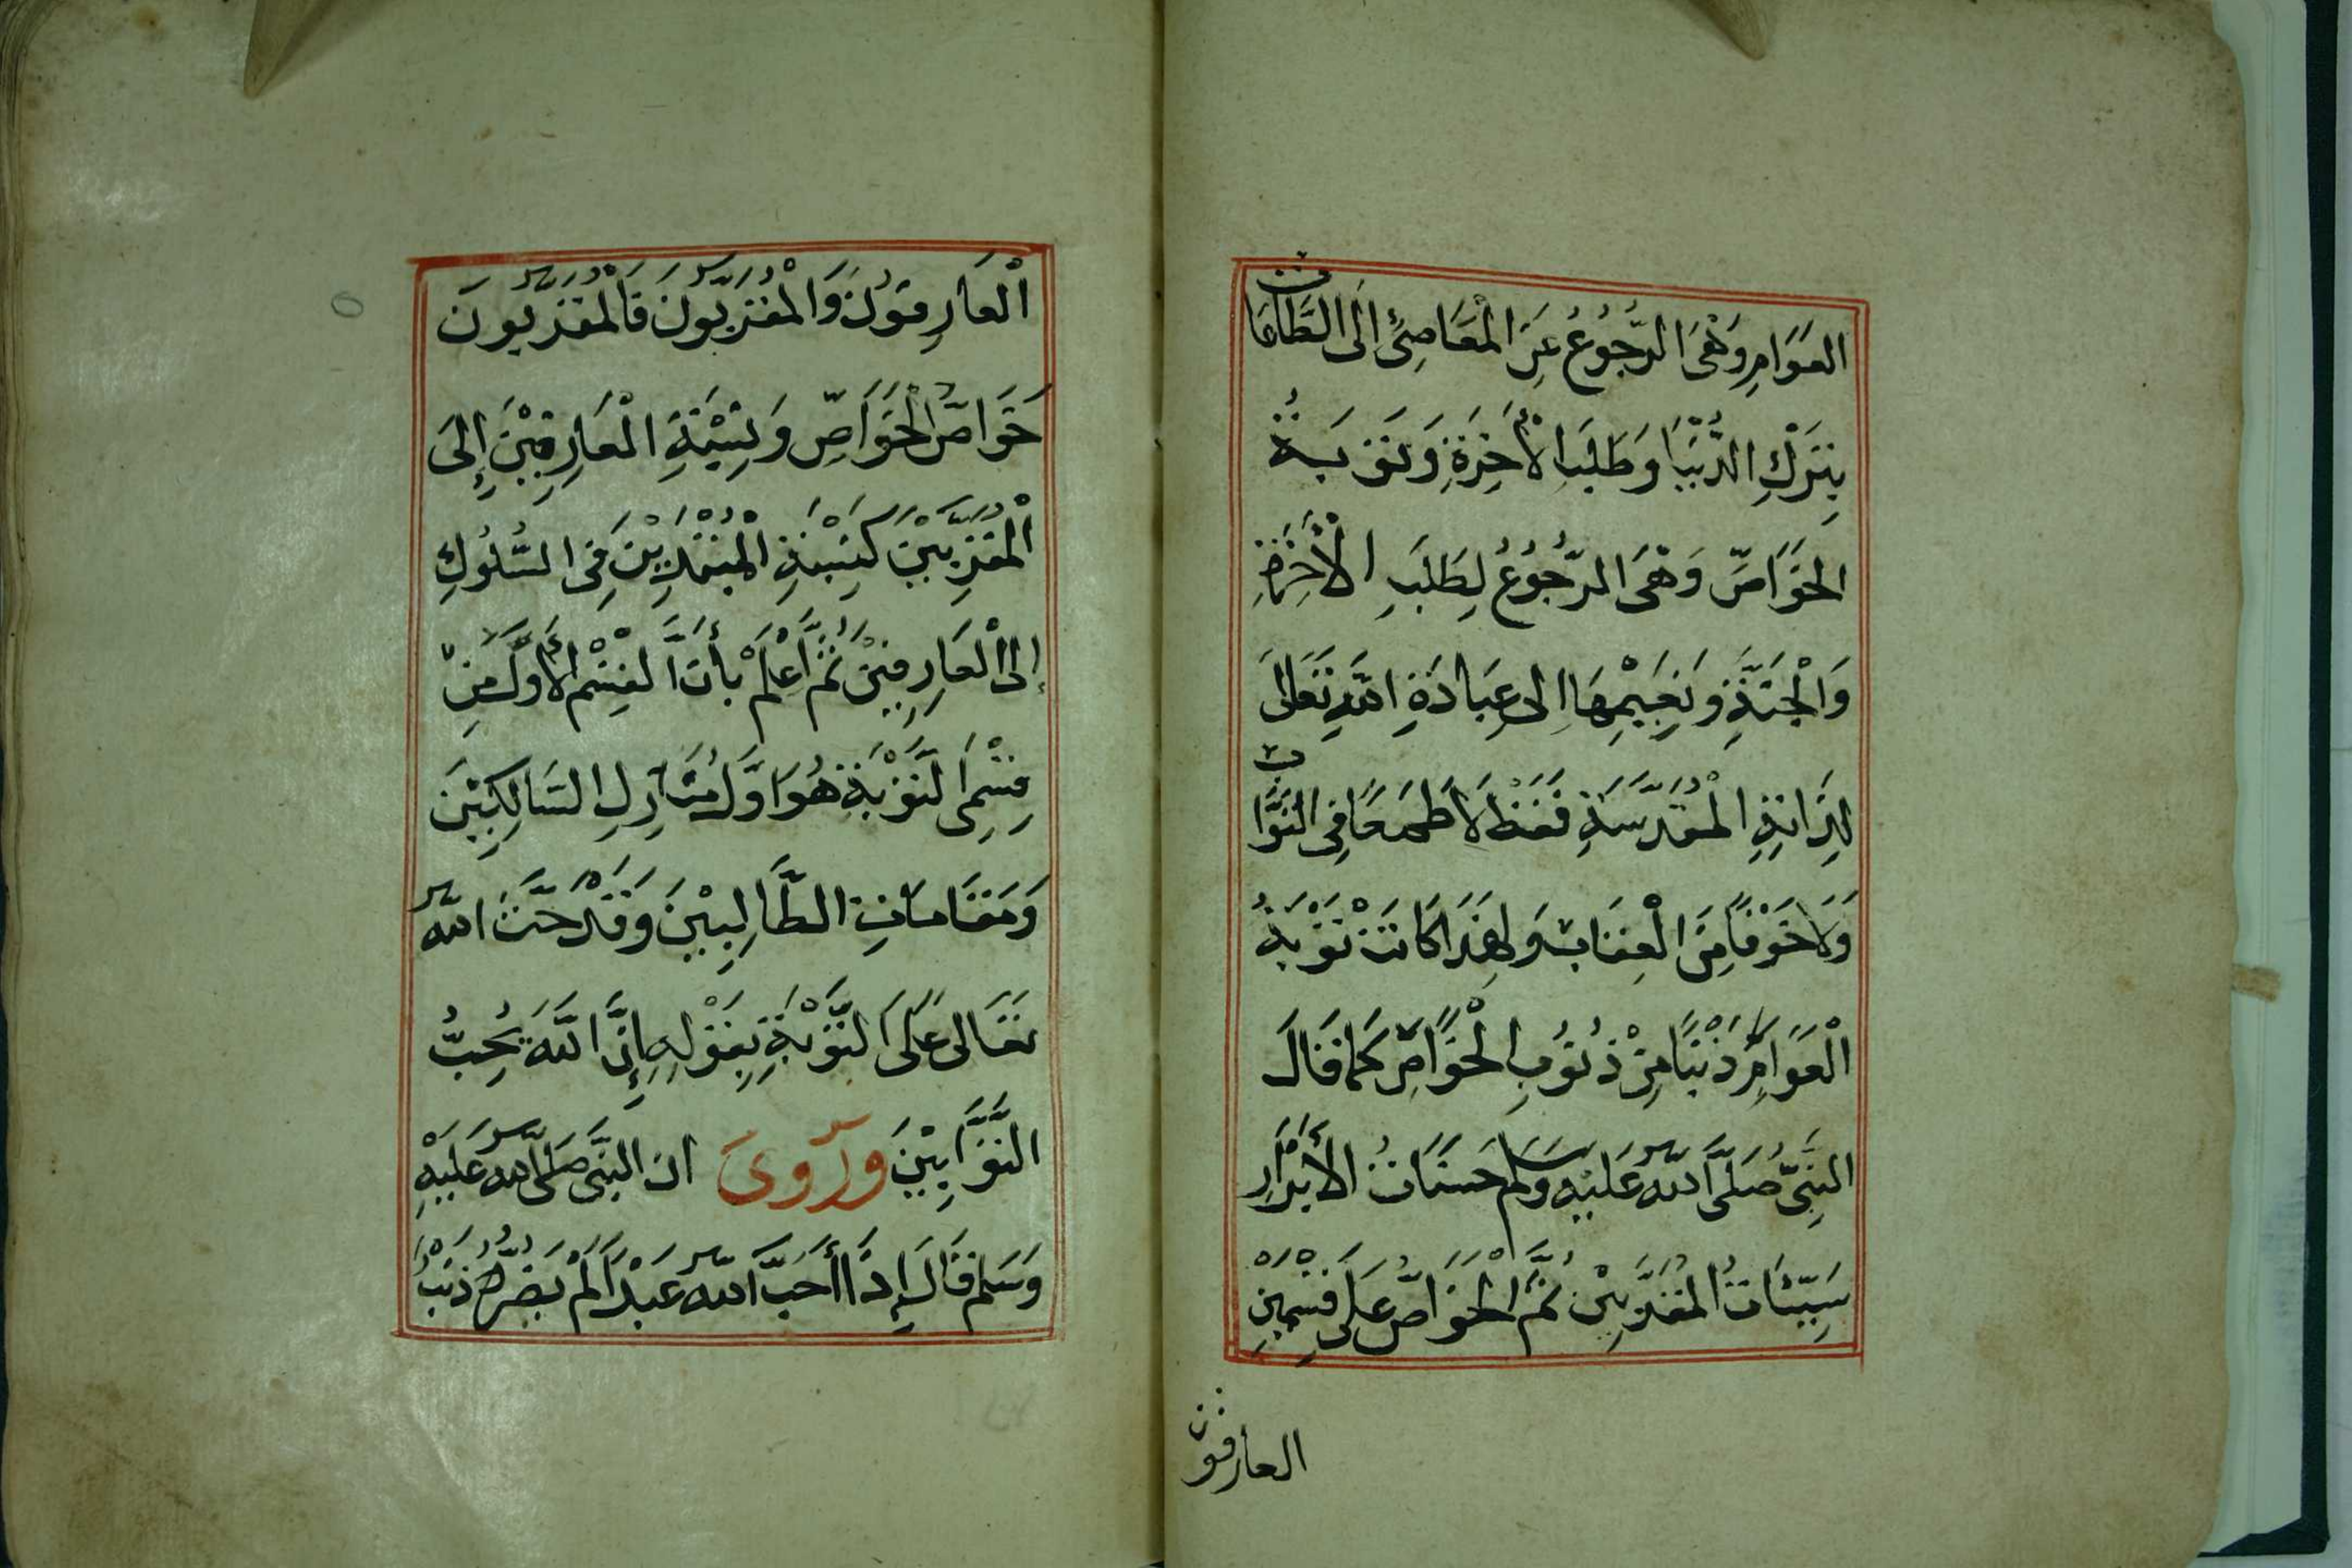 العَوَامِ وَهْىَ الرُّجُوعُ عَنِ الْمَعَاصِىْ اِلَى الطَّاعَات
بِتَرْكِ الدُّنْيَا وَطَلَبِ الْأٰخِرَةِ وَتَوْبَةُ
الخَوَاصِّ وَهْىَ الرُّجُوعُ لِطَلَبِ الْأٰخِرَةِ
وَالْجَنَّةِ وَنَعِيْمِهَا اِلى عِبَادَةِ اللّٰهِ تَعَالىَ
لِذَاتِهِ الْمُقَدَّسَةِ فَقَطْ لَا طَمَعًا فِى الثَّوَاب
وَلَا خَوْفًا مِنَ الْعِقَابِ وَلِهَذَا كَانَتْ تَوْبَةُ
الْعَوَامِّ ذَنْبًا مِنْ ذُنُوبِ الْخَوَاصِّ كَمَا قَالَ
النَّبِىُّ صَلَّى اللّٰهُ عَلَيْهِ وَسَلَّمَ حَسَنَاتُ الْأَبْرَارِ
سَيِّئَاتُ الْمُقَرَّبِيْنَ ثُمَّ الْخَوَاصُّ عَلَى قِسْمَيْنِ
العارفون
الْعَارِفُوْنَ وَالْمُقَرَّبُّوْنَ فَالْمُقَرَّبُوْنَ
خَوَاصُّ الْخَوَاصِّ وَنِسْبَةِ الْعَارِفِيْنَ إِلىَ
الْمُقَرَّبِيْنَ كَنِسْبَةِ الْمُبْتَدِيْنَ فِى السُّلُوكِ
إِلىَ الْعَارِفِيْنَ ثُمَّ اعْلَمْ بِأَنَّ الْقِسْمَ الْأَوَّلَ مِنْ
قِسْمِى التَّوْبَةِ هُوَ اَوَّلُ مَنَازِلِ السَّالِكِيْنَ
وَمَقَامَاتِ الطَّالِبِيْنَ وَقَدْ حَثَّ اللّٰه
تَعَالى عَلَى التَّوْبَةِ بِقَوْلِهِ إِنَّ اللَّهَ يُحِبُّ
التَّوَّابِيْنَ وَرُوِىَ ان النبَّى صَلَى اللّٰه عَلَيْهِ
وَسَلم قَالَ إِذَا أَحَبَّ اللّٰه عَبْدًا لَمْ يَضُرُّهُ ذَنْبٌ